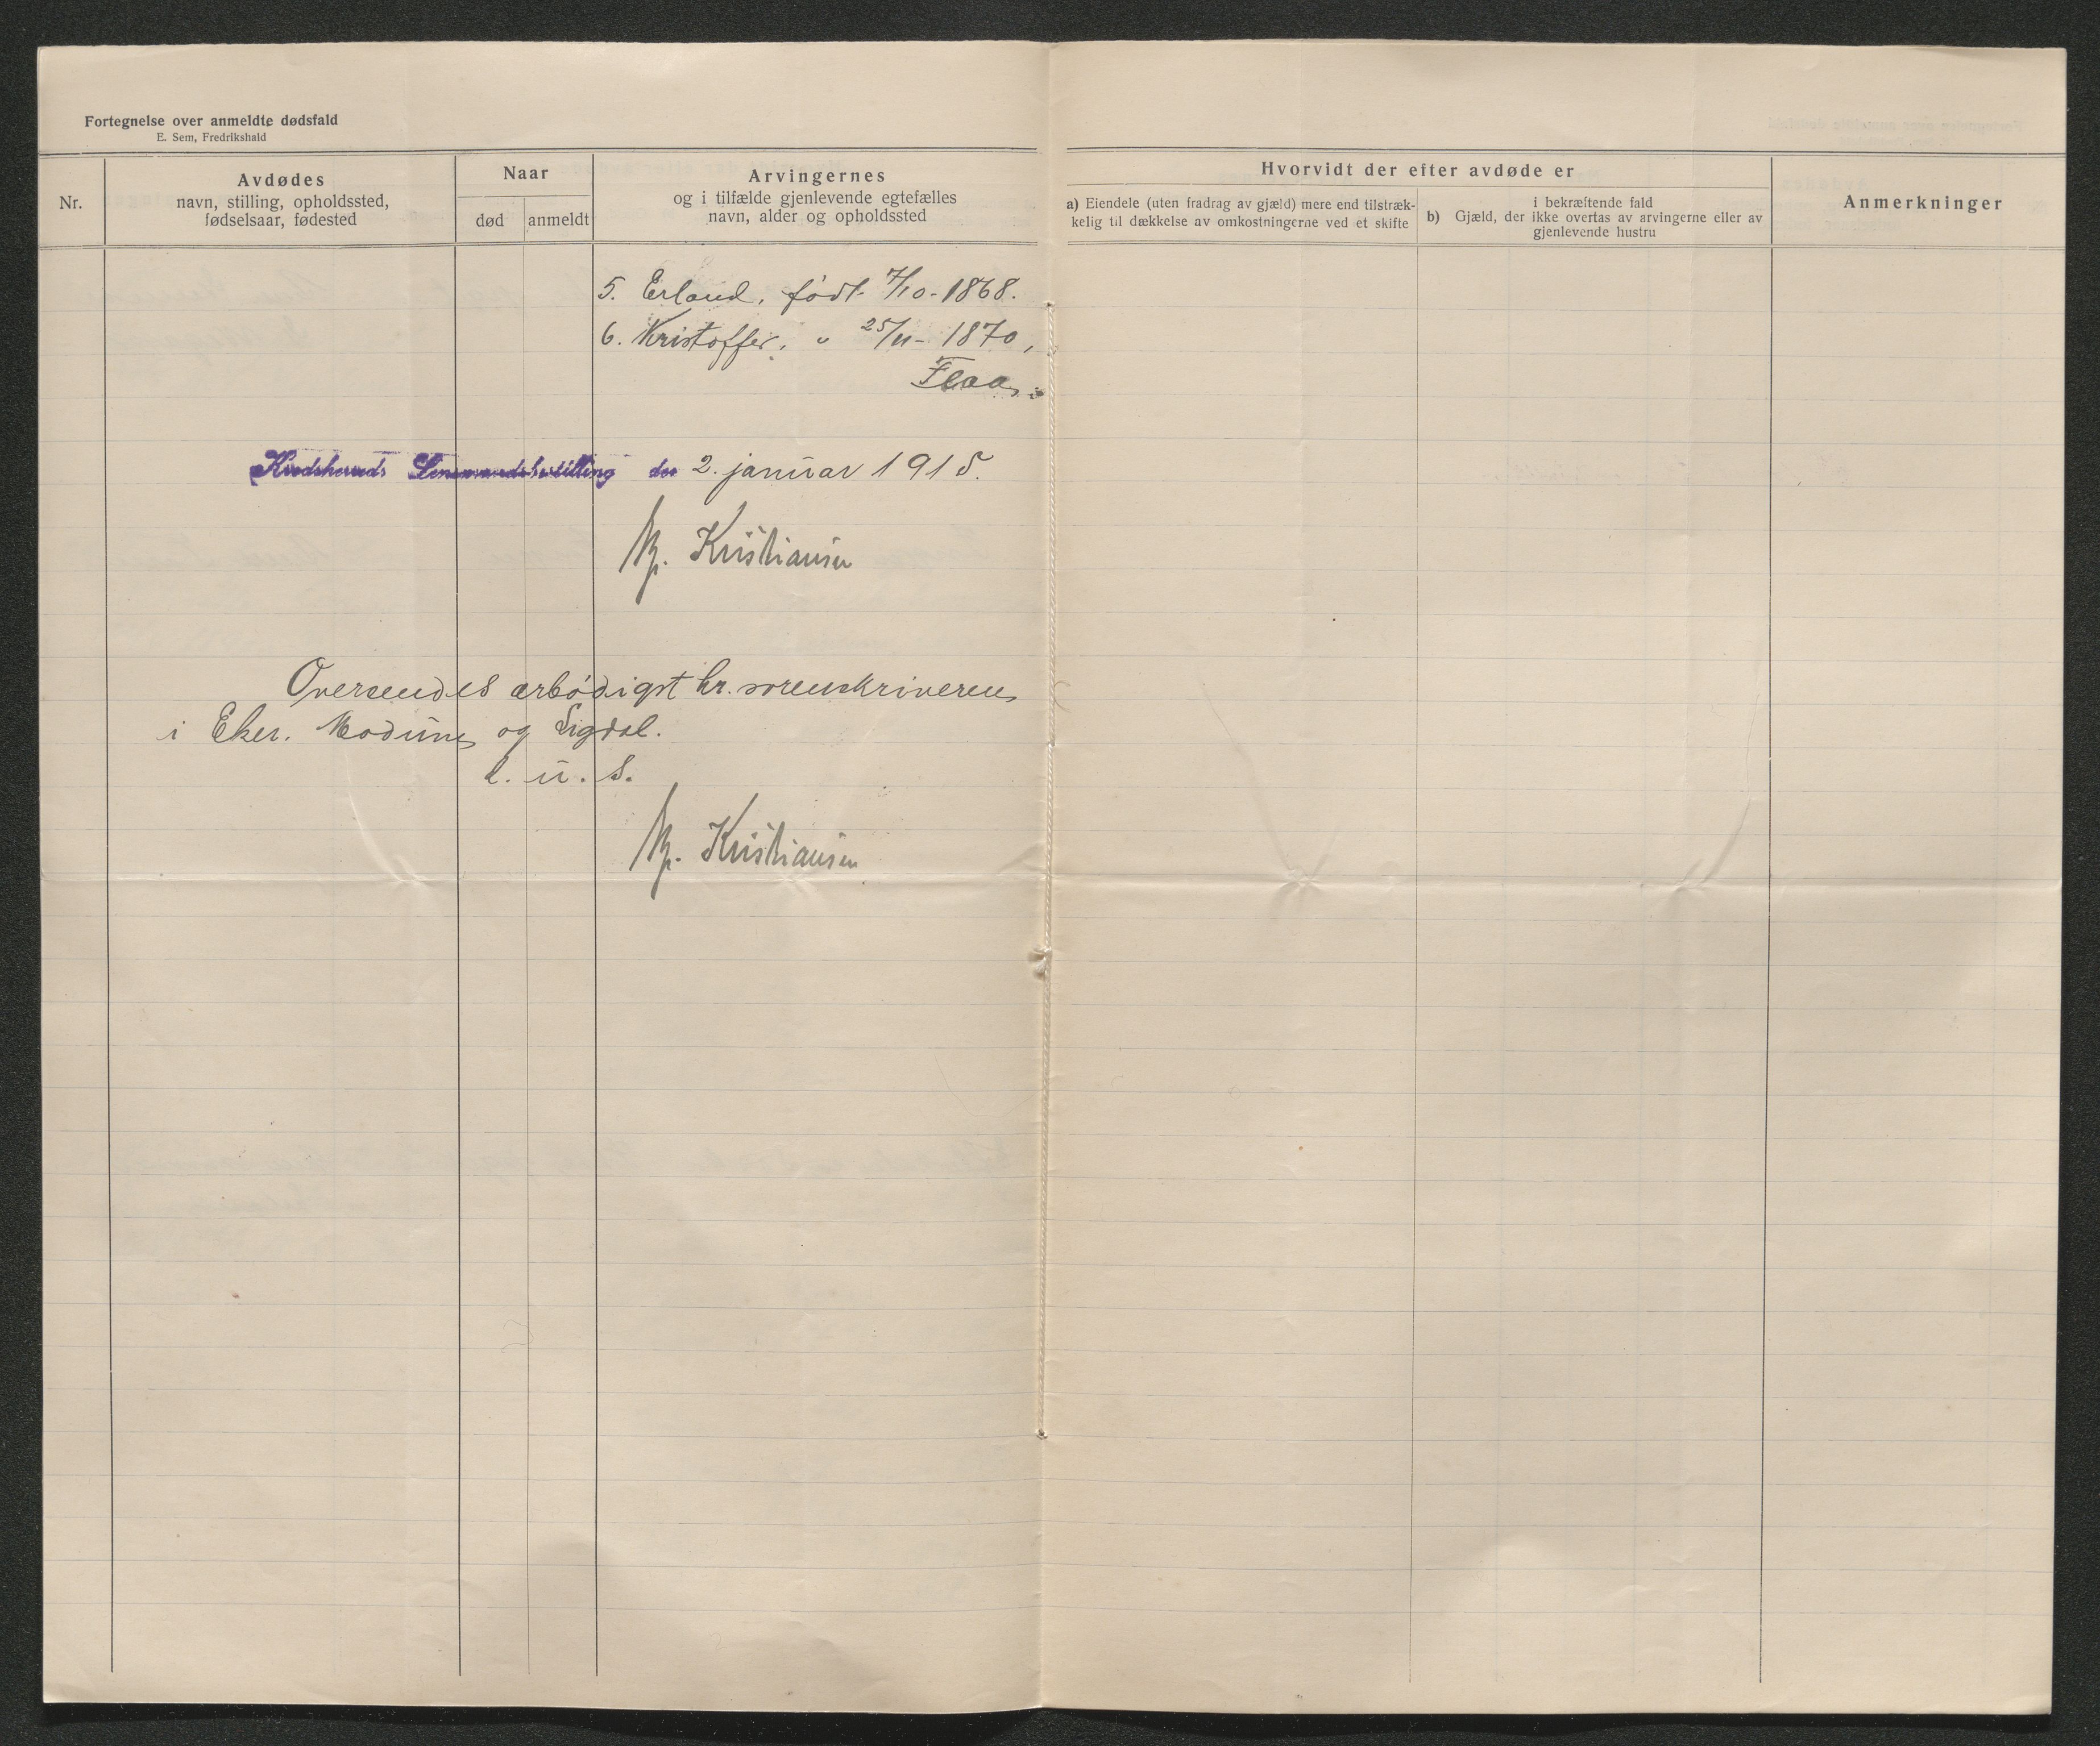 Fortegnelse over anmeldte dødsfald
E. Sem, Fredrikshald
Nr.
Avdødes
navn, stilling, opholdssted,
fødselsaar, fødested
Naar
død
anmeldt
Arvingernes
og i tilfælde gjenlevende egtefælles
navn, alder og opholdssted
Hvorvidt der efter avdøde er
a) Eiendele (uten fradrag av gjæld) mere end tilstræk-
kelig til dækkelse av omkostningerne ved et skifte
i bekræftende fald
b) Gjæld, der ikke overtas av arvingerne eller av
gjenlevende hustru
Anmerkninger
5. Erland, født 7/10-1868.
6. Kristoffer, " 25/11-1870,
Flaa.
Krødsherreds Lensmandsbestilling den 2. januar 1915.
Kristiansen
Oversendes ærbødigst hr. sorenskriveren
i Eker, Modum og Sigdal.
d. u. s.
Kristiansen